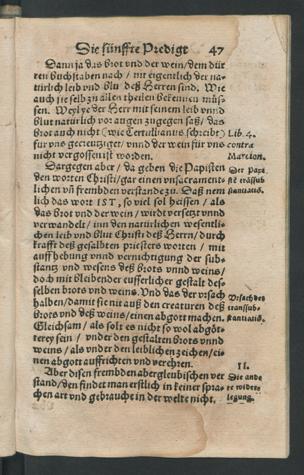 Die fünffte Predigt 47
Dann ja das brot vnd der wein/dem dür
ren buchstaben nach / nit eigentlich der na-
türlich leib vnd blu deß Herren sind. Wie
auch sie selb zu allen theilen bekennen müs-
sen. Weyl ye der Herr mit seinem leib vnd
blut natürlich vor augen zugegen saß/ das
brot auch nicht (wie Tertullianus schreibt) Lib. 4.
für vns gecreutziget/ vnnd der wein für vns contra
nicht vergossen ist worden. Marcion.
Dargegen aber/ da geben die Papisten Der Papi
den worten Christi/gar einen vnsacrament- ste transsub
lichen vñ frembden verstand zu. Daß nem stantiatio.
lich das wort IST, so viel sol heissen / als
das Brot vnd der wein/ wirdt versetzt vnnd
verwandelt / inn den natürlichen wesentli-
chen leib vnd blut Christi deß Herrn/ durch
krafft deß gesalbten priesters worten / mit
auffhebung vnnd vernichtigung der sub-
stantz vnd wesens deß brots vnnd weins/
doch mit bleibender eusserlicher gestalt des-
selben brots vnd weins. Vnd das der vrsach Vrsach des
halben/damit sie nit auß den creaturen deß transsub-
brots vnd deß weins/einen abgott machen. stantiatiõis.
Gleichsam / als solt es nicht so wol abgöt-
terey sein / vnder den gestalten brots vnnd
weins / als vnder den leiblichen zeichen/ei-
nen abgott auffrichten vnd verehren. II.
Aber disen frembden abergleubischen ver Die ande
stand/ den findet man erstlich in keiner spra- re widere
chen art vnd gebrauch in der welt nicht. legung.